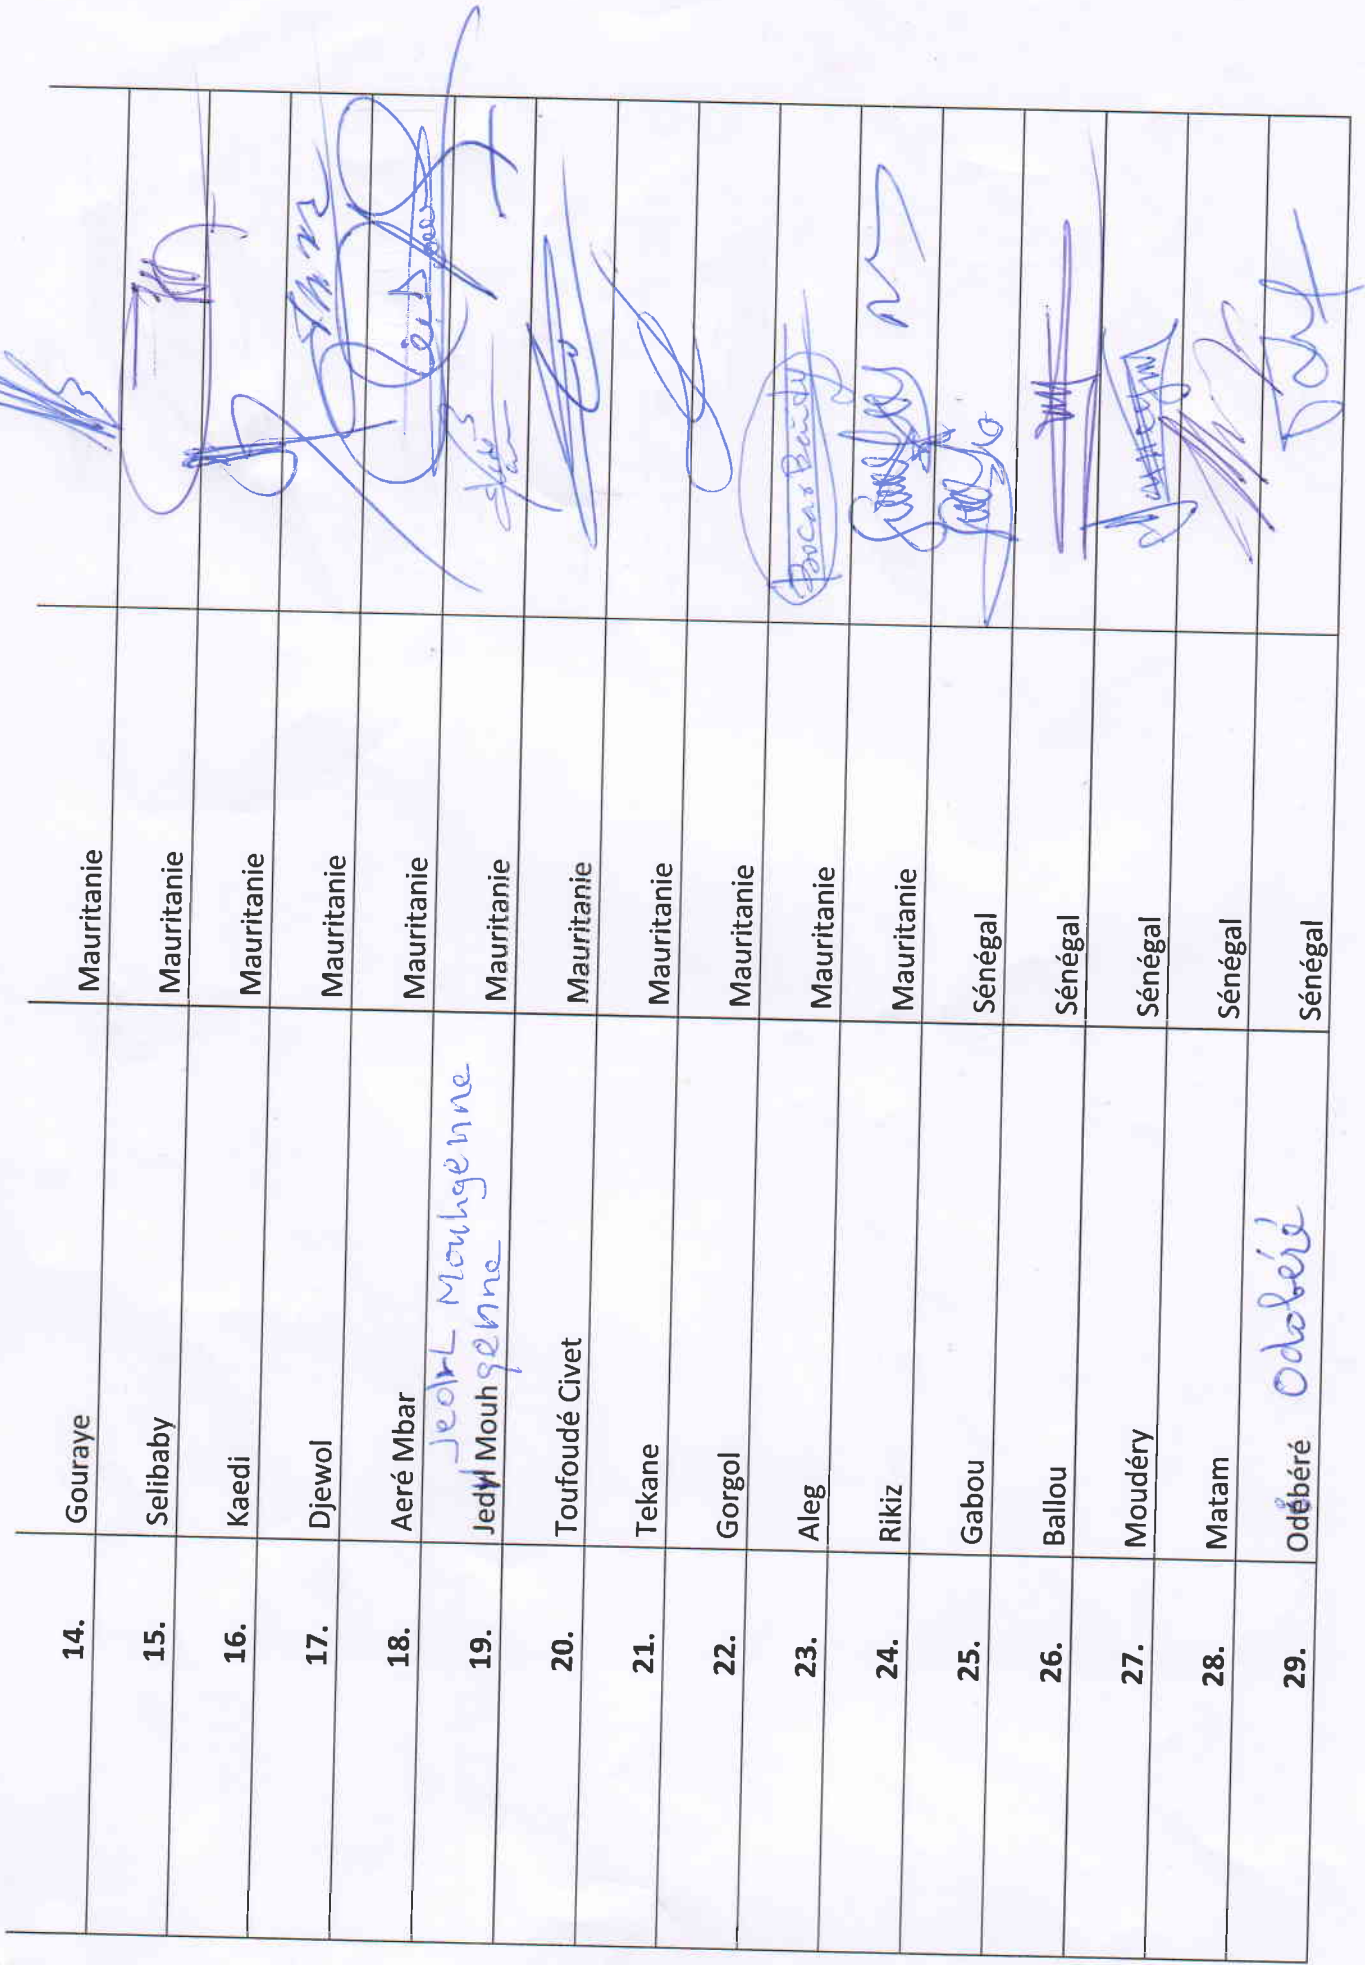 14. Gouraye Mauritanie
15. Selibaby Mauritanie
16. Kaedi Mauritanie
17. Djewol Mauritanie
18. Aeré Mbar Mauritanie
Mouhgenne
19. Mouhgenne Mauritanie
20. Toufoudé Civet Mauritanie
21. Tekane Mauritanie
22. Gorgol Mauritanie
23. Aleg Mauritanie Bocar
24. Rikiz Mauritanie
25. Gabou Sénégal
26. Ballou Sénégal
27. Moudéry Sénégal
28. Matam Sénégal
29. Odobéré Sénégal